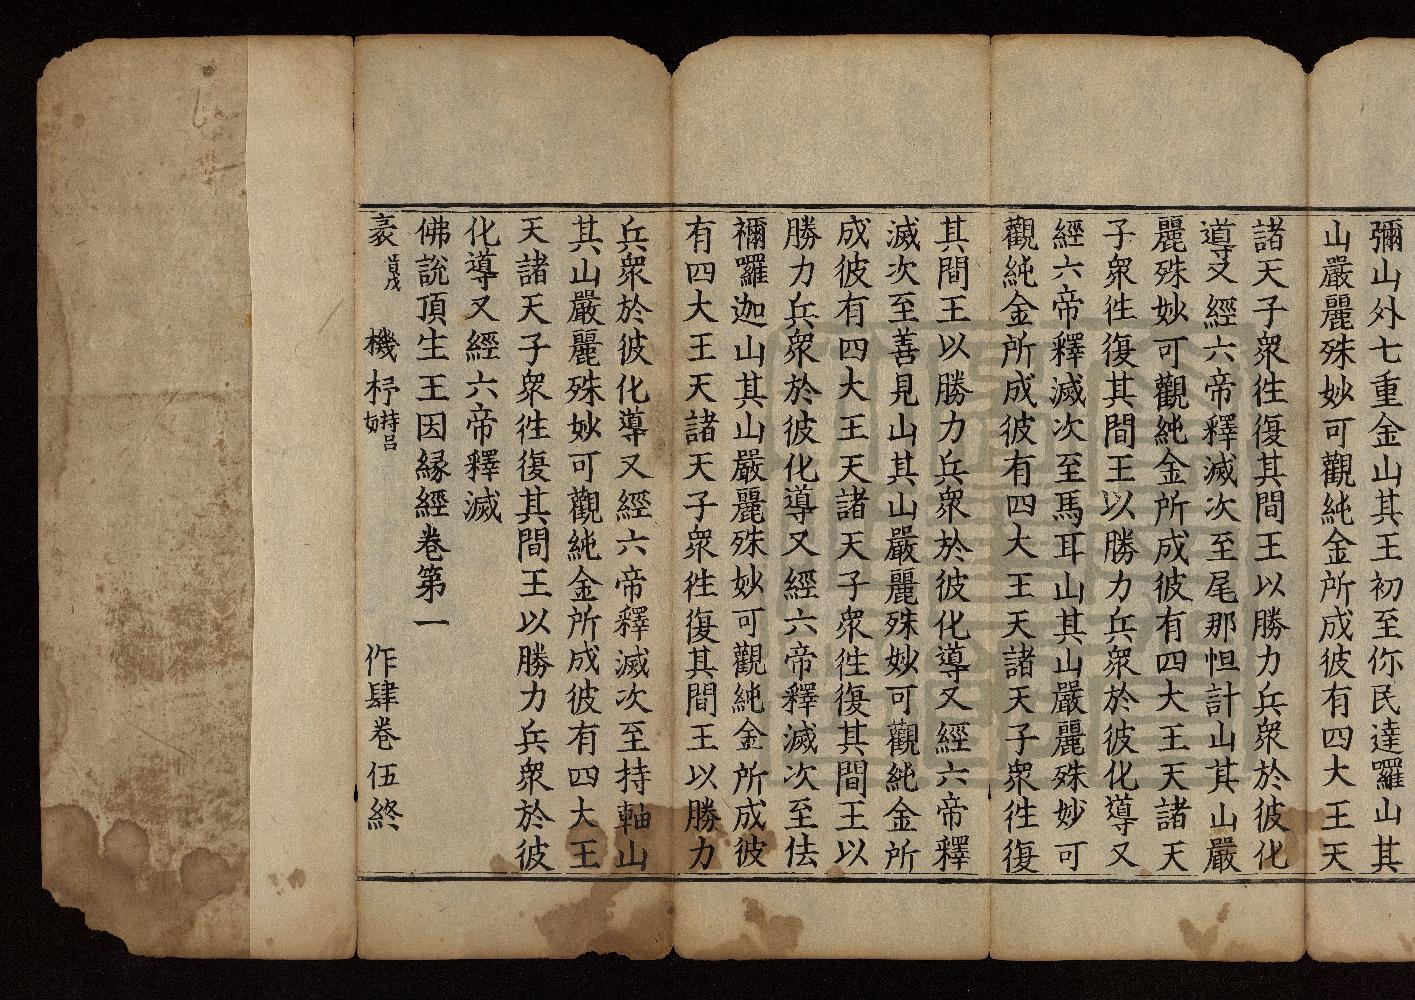 彌山外七重金山其王初至你民達羅山其
山嚴麗殊妙可觀純金所成彼有四大王天
諸天子衆徃復其間王以勝力兵衆於彼化
導又經六帝釋滅次至尾那怛計山其山嚴
麗殊妙可觀純金所成彼有四大王天諸天
子衆徃復其間王以勝力兵衆於彼化導又
經六帝釋滅次至馬耳山其山嚴麗殊妙可
觀純金所成彼有四大王天諸天子衆徃復
其間王以勝力兵衆於彼化導又經六帝釋
滅次至善見山其山嚴麗殊妙可觀純金所
成彼有四大王天諸天子衆徃復其間王以
勝力兵衆於彼化導又經六帝釋滅次至佉
禰羅迦山其山嚴麗殊妙可觀純金所成彼
有四大王天諸天子衆徃復其間王以勝力
兵衆於彼化導又經六帝釋滅次至持軸山
其山嚴麗殊妙可觀純金所成彼有四大王
天諸天子衆徃復其間王以勝力兵衆於彼
化導又經六帝釋滅
佛說頂生王因緣經卷第一
機杼 作肆卷伍終